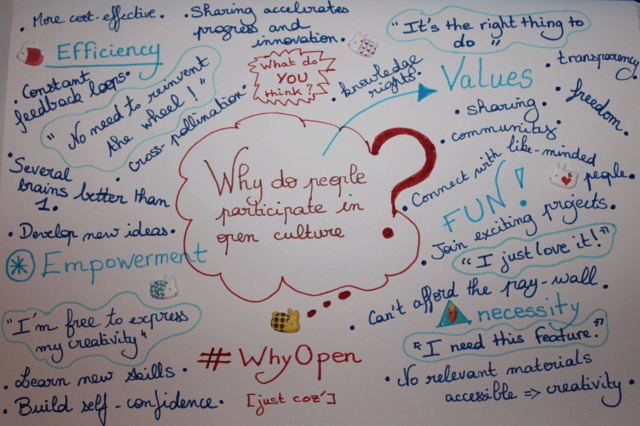 • More cost-effective.
• Sharing accelerates
progress and
innovation.
Efficiency
• Constant
feedback loops.
"No need to reinvent
the wheel!"
• cross-pollination
What do
YOU
think?
• Several
brains better than
1.
• Develop new ideas.
Empowerment
"I'm free to express
my creativity"
• Learn new skills
• Build self-confidence.
Why do people
participate in
open culture
?
#WhyOpen
[just coz']
"It's the right thing to
do"
Values
• knowledge
rights
• transparency
• sharing
• freedom.
• community
• Connect with like-minded
people.
FUN!
• Join exciting projects.
"I just love it!"
• Can't afford the pay-wall.
necessity
"I need this feature."
• No relevant materials
accessible => creativity.